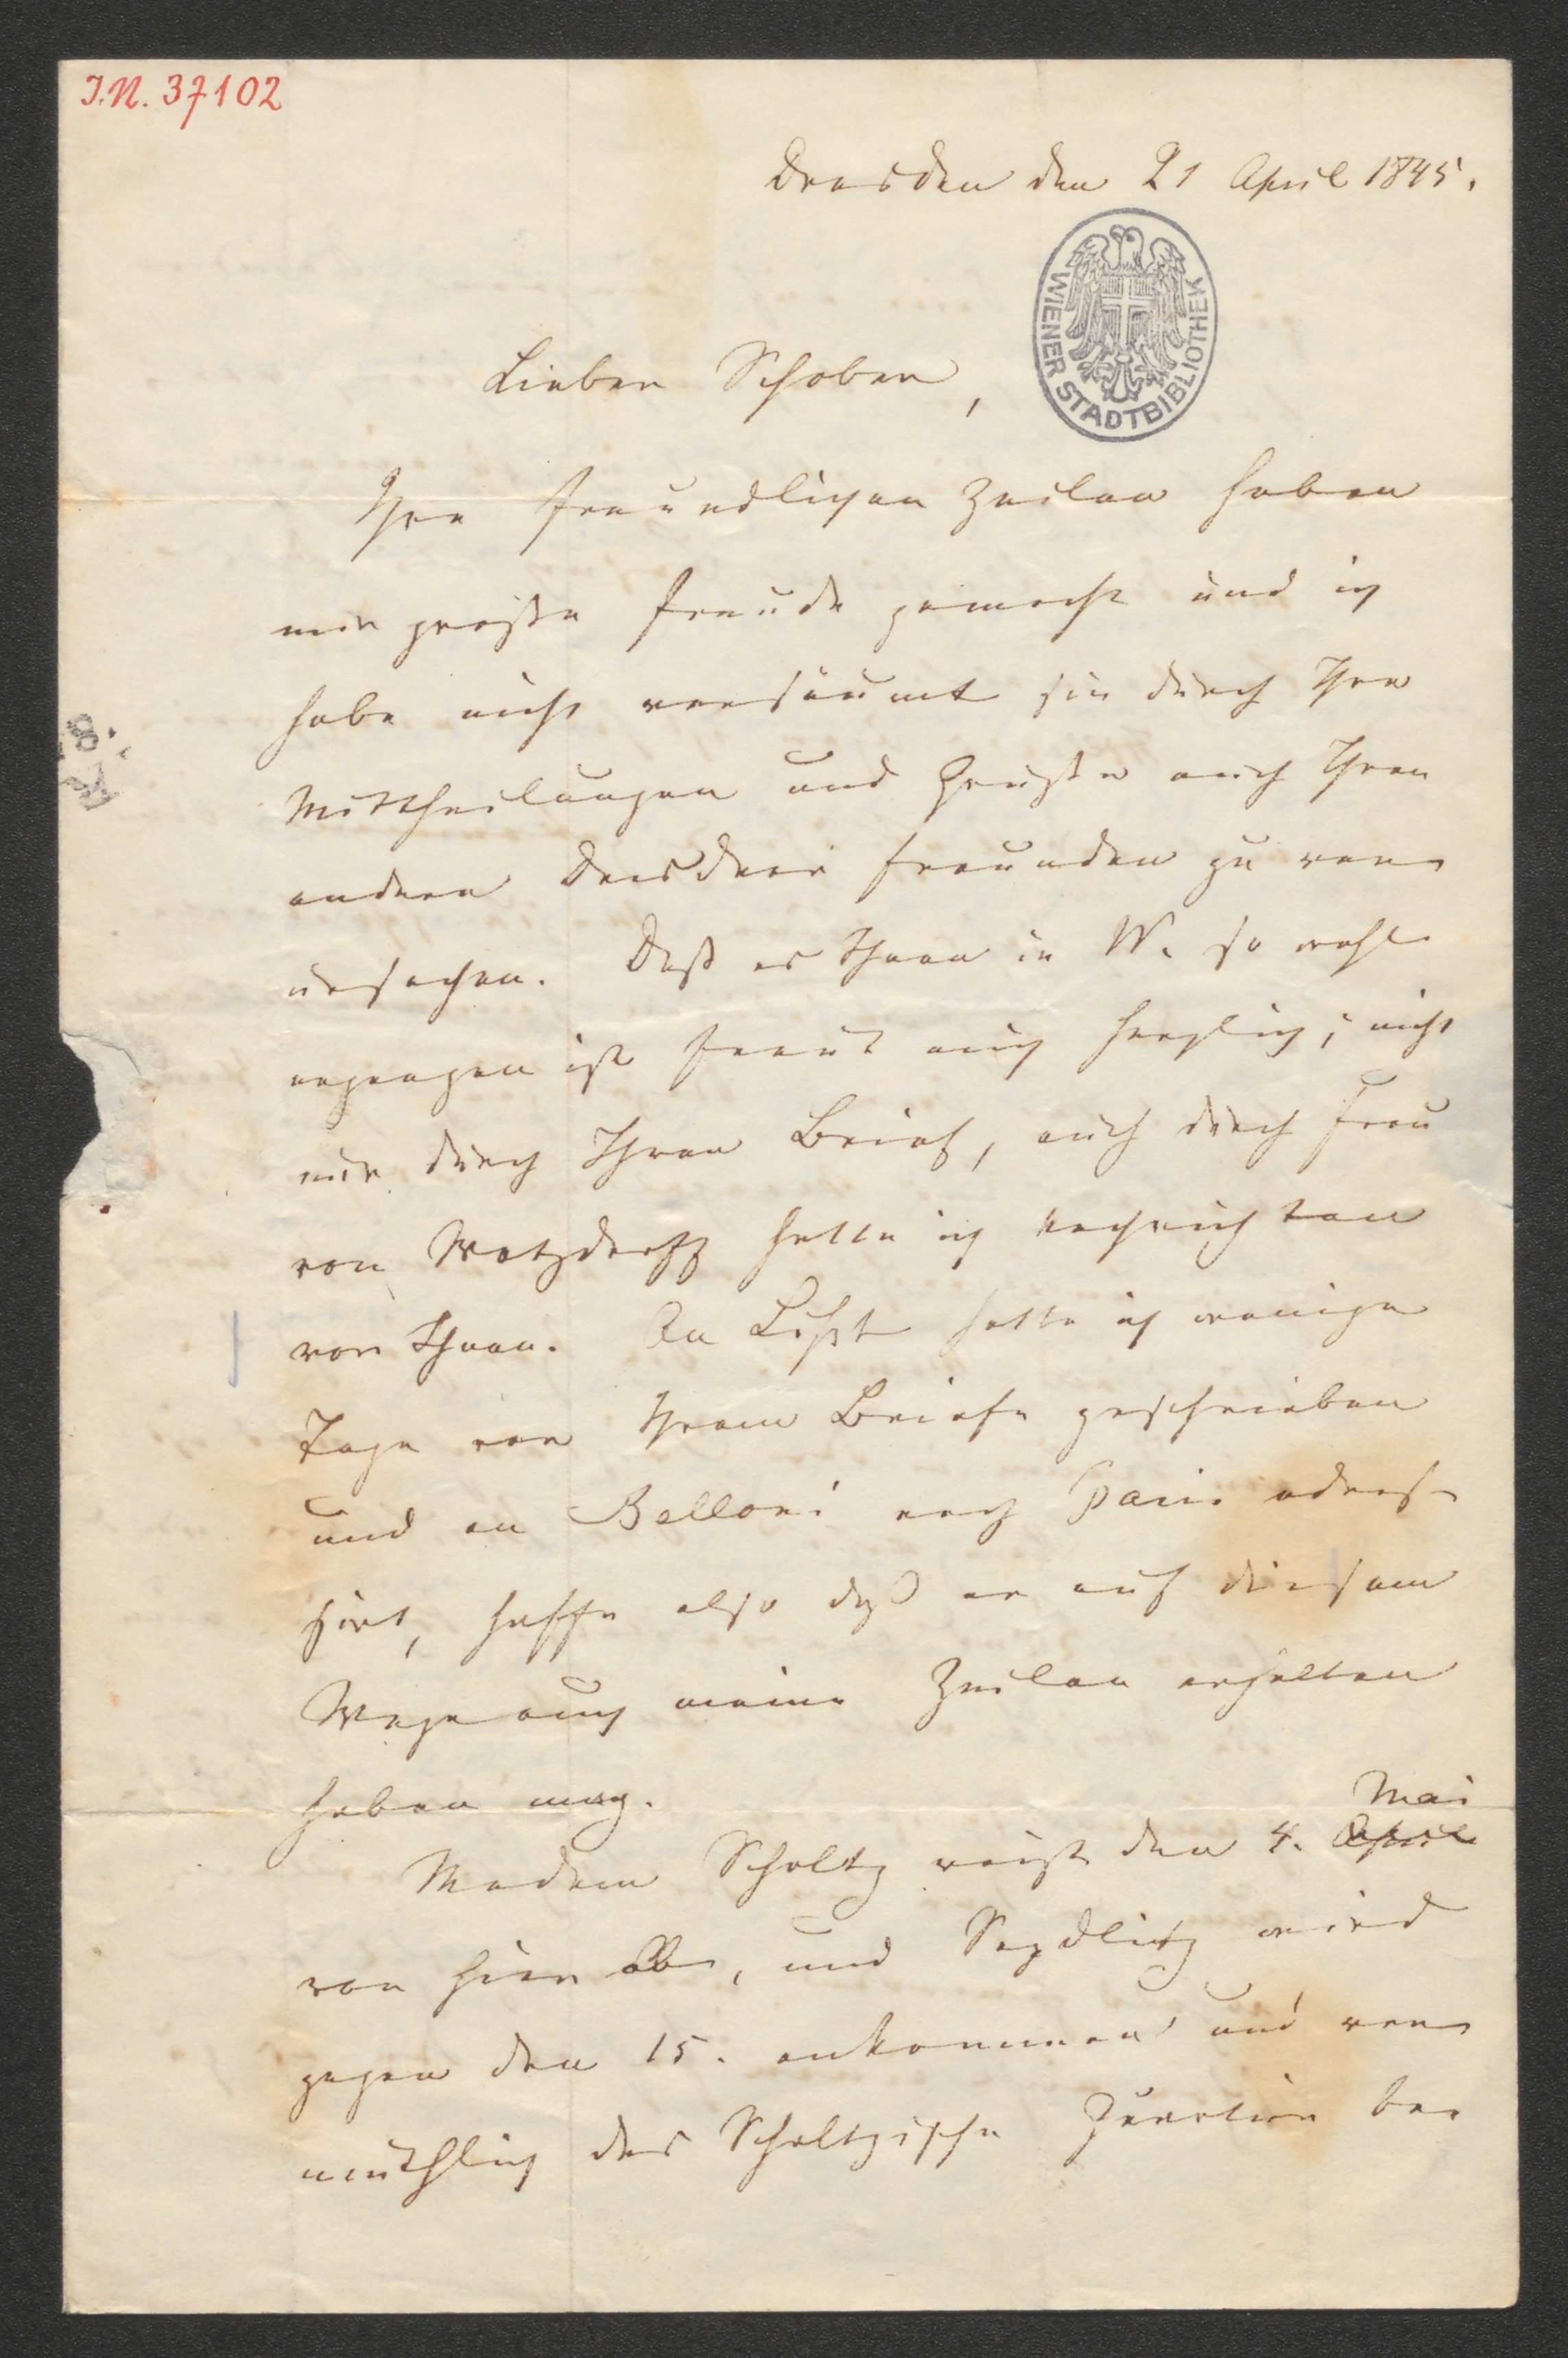 J.N. 37102
Dresden den 21 April 1845.
WIENER STADTBIBLIOTHEK
Lieber Schober,
Ihre freundlichen Zeilen haben
mir große Freude gemacht und ich
habe nicht versäumt sie durch Ihre
Mittheilungen und Grüße auch Ihren
andern Dresdner Freunden zu ver
ursachen. Daß es Ihnen in W. so wohl
ergangen ist freut mich herzlich; nicht
nur durch Ihren Brief, auch durch Frau
von Watzdorff hatte ich Nachrichten
von Ihnen. An Lißt hatte ich wenige
Tage vor Ihrem Briefe geschrieben
und an Belloni nach Paris adres-
sirt, hoffe also daß er auf diesem
Wege auch meine Zeilen erhalten
haben mag.
Mai
Madam Scholtz reist den 4. April
von hier ab, und Seydlitz wird
gegen den 15. ankommen und ver
muthlich das Scholtzische Quartier be